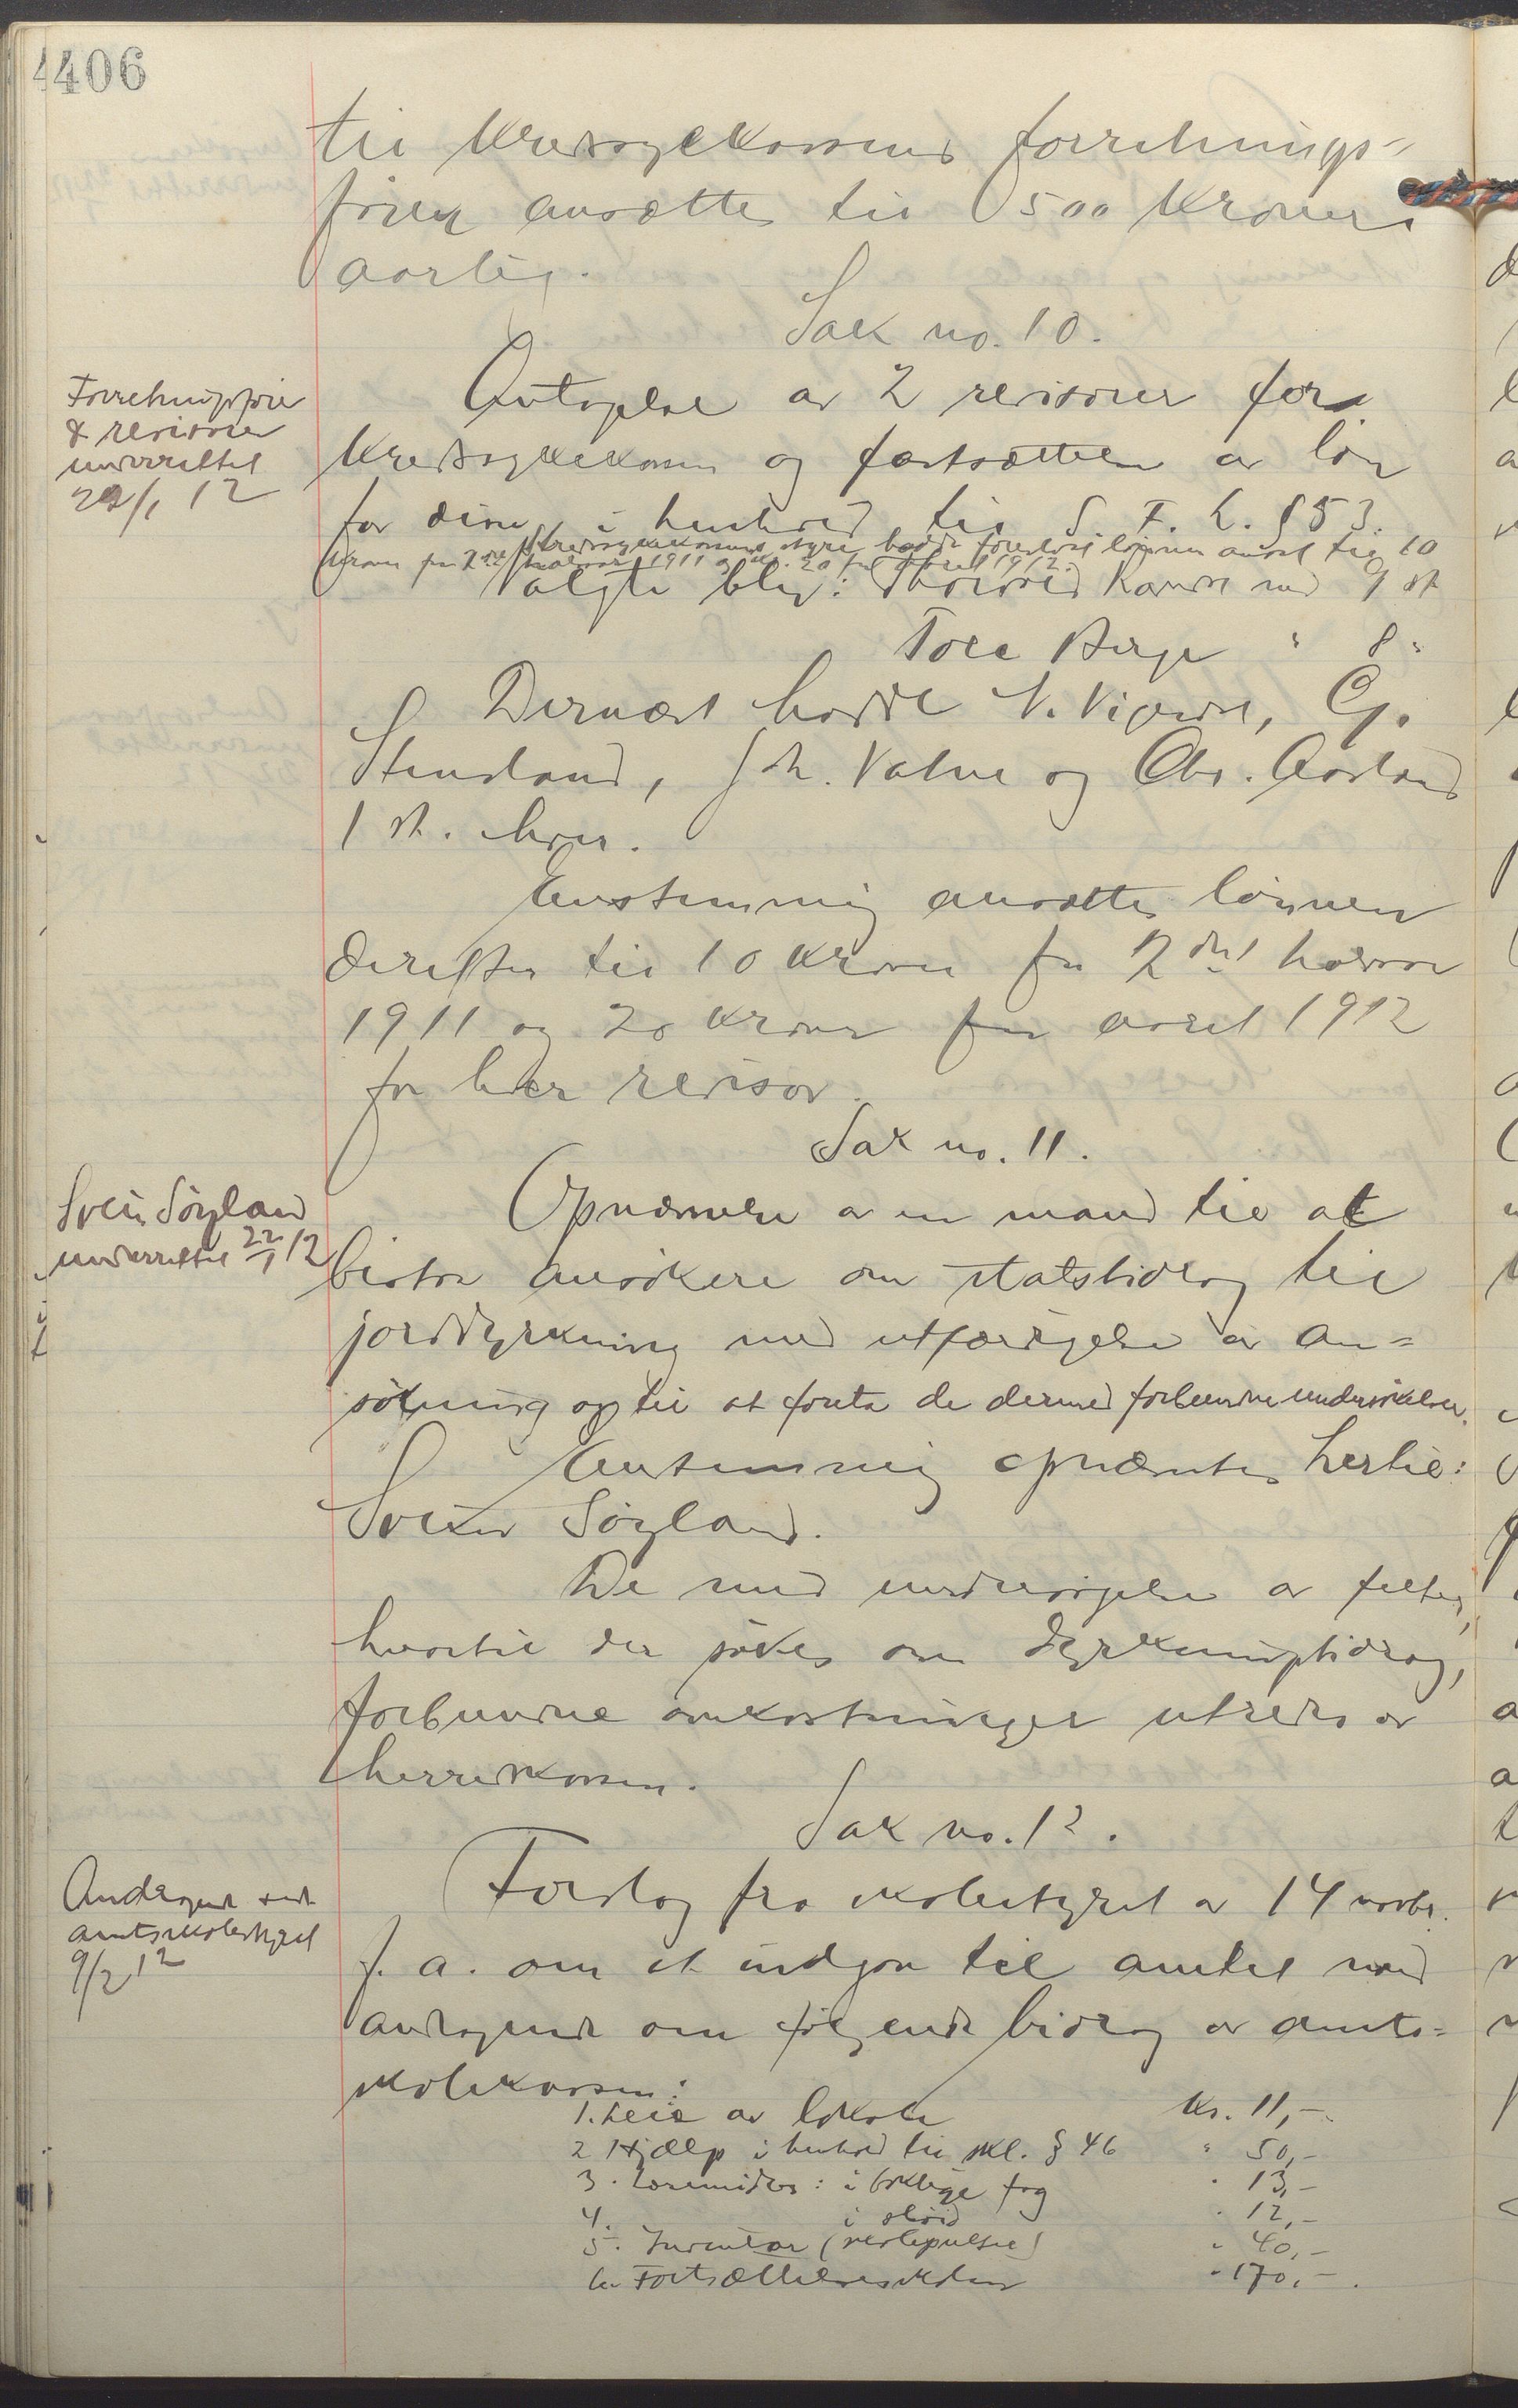 406
til kredssykekassens forretnings-
fører ansættes til 500 kroner
aarlig.
Sak no. 10.
Forretningsfører
& revisorer
underrettet
22/1 12
Antagelse av 2 revisorer for
kredssykekassen og fastsættelse av løn
for disse i henhold til S. F. L. § 53.
Kredssykekassens styre hadde foreslaat lønnen ansat til 10
kroner for 2det halvaar 1911 og kr. 20 for aaret 1912.
Valgte blev: Thorvald med 9 st
Tore Berge " 8 "
Dernæst hadde N. Vigesdal, G.
Stensland, Joh. Vatne og Chr. Aasland
1 st. hver.
Enstemmig ansattes lønnen
derefter til 10 kroner for 2det halvaar
1911 og 20 kroner for aaret 1912
for hver revisor.
Sak no. 11.
Svein Søyland
underrettet 22/1 12
Opnævnelse av en mand til at
bistaa ansøkere om statsbidrag til
jorddyrkning med utfærdigelse av an=
søkning og til at foreta de dermed forbundne undersøkelser.
Enstemmig opnævntes hertil:
Svein Søyland.
De med undersøgelse av felter,
hvortil der søkes om dyrkningsbidrag,
forbundne omkostninger utredes av
herredskassen.
Sak no. 12.
Andragende sendt
amtsskolestyret
9/2 12
Forslag fra skolestyret av 14 novbr.
f. a. om at indgaa til amtet med
andragende om følgende bidrag av amts=
skolekassen:
1. Leie av lokale kr. 11,-
2 Hjælp i henhold til skl. § 46 " 50,-
3. Læremidler: i boklige fag " 13,-
4. i sløid " 12,-
5. Inventar (skolepulter) " 40,-
6. Fortsættelsesskolen " 170,-.